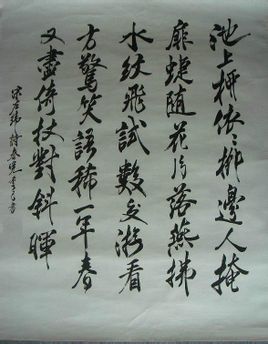 池上柳依〻柳邊人掩
扉蜨随花片落燕拂
水紋飛試數交游看
方驚笑語稀一年春
又盡倚杖對斜暉
宋左緯詩春晚